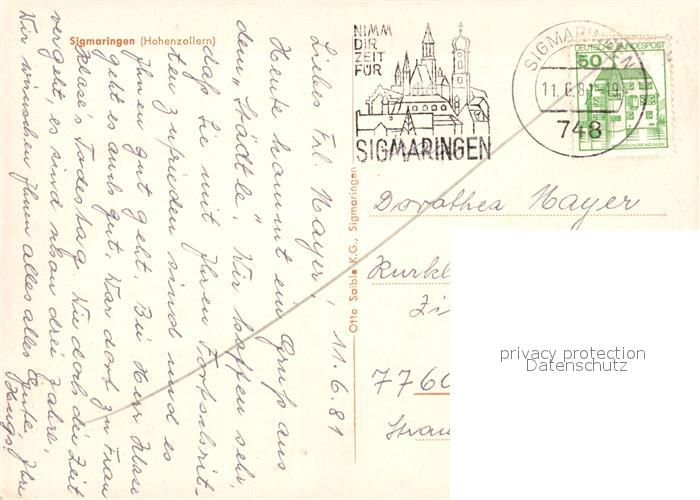 Sigmaringen (Hohenzollern)
11.6.81
Liebes Frl. Mayer!
Heute kommt ein Gruß aus
dem „Städtle". Wir hoffen sehr,
daß Sie mit Ihren Fortschrit-
ten zufrieden sind und es
Ihnen gut geht. Bei Herr Klose
geht es auch gut. War dort zu Frau
Klose's Todestag. Wie doch die Zeit
vergeht, es sind schon drei Jahre.
Wir wünschen Ihnen alles alles Gute,
Ihre
Otto Saible K.G., Sigmaringen
NIMM
DIR
ZEIT
FÜR
SIGMARINGEN
SIGMARINGEN
11.6.81
748
DEUTSCHE BUNDESPOST
50
Dorothea Mayer
Kurkl
7760
privacy protection
Datenschutz